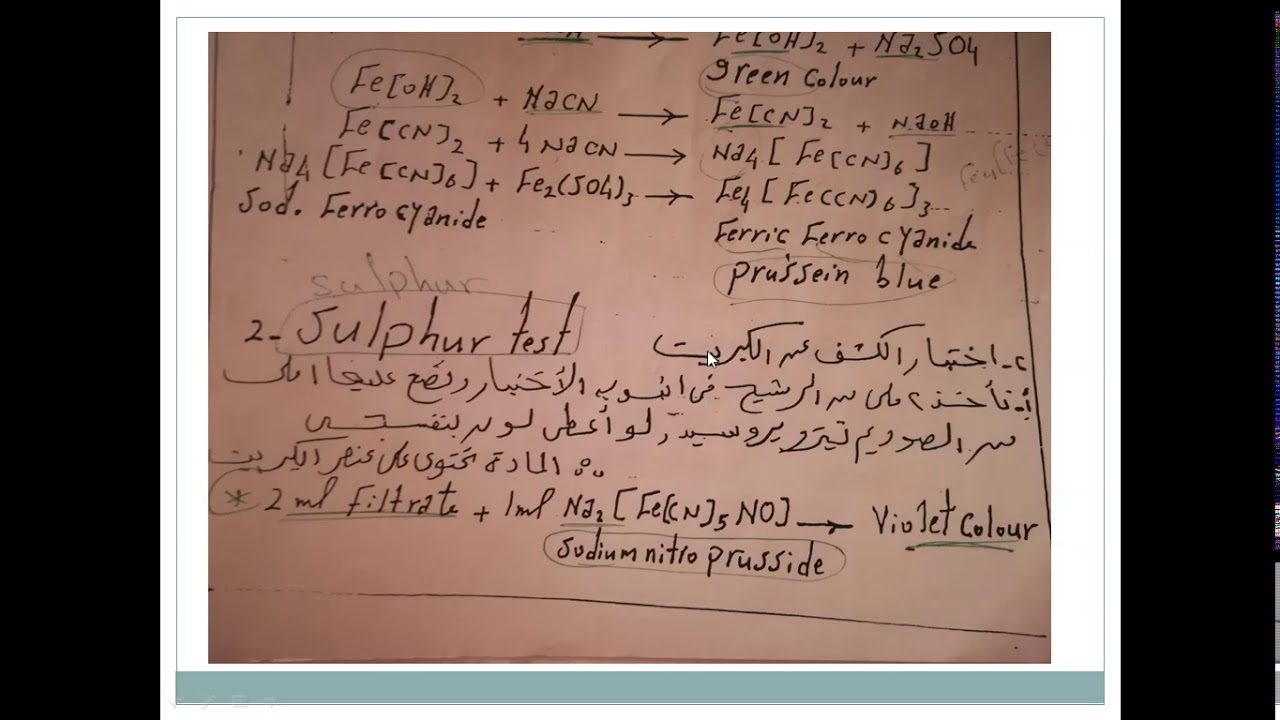 Fe[OH]2 + Na2SO4
green Colour
Fe[OH]2 + NaCN → Fe[CN]2 + NaOH
Fe[CN]2 + 4 NaCN → Na4[Fe[CN)6]
Na4[Fe[CN)6] + Fe2(SO4)3 → Fe4[Fe(CN)6]3
Sod. Ferrocyanide
Ferric Ferrocyanide
prussein blue
sulphur
2- Sulphur test
٢- اختبار الكشف عن الكبريت
أ- نأخذ ٢ ملى من الرشيح فى انبوب الأختبار ونضع عليها ١ ملى
من الصوديوم نيتروبروسيد, لو أعطى لون بنفسجى
∴ المادة تحتوى على عنصر الكبريت
* 2 ml Filtrate + 1ml Na2[Fe[CN]5NO] → Violet Colour
Sodium nitro prusside